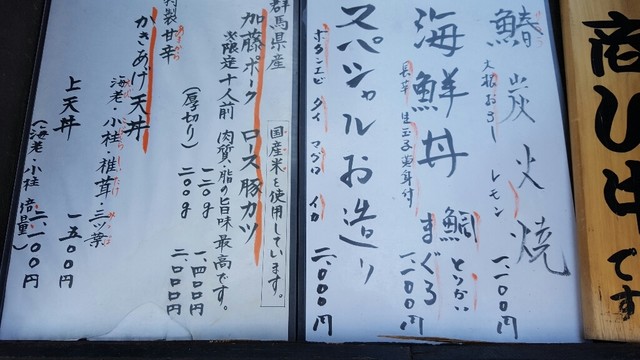 商い中です
鰆炭火焼
大根おろし レモン
一、二〇〇円
海鮮丼
鯛 とりがい まぐろ
一、二〇〇円
スパシャルお造り
ボタンエビ タイ マグロ イカ
二、〇〇〇円
国産米を使用しています。
群馬県産
加藤ポーク ロース豚カツ
※限定十人前 肉質・脂の旨味最高です。
一二〇g 一、四〇〇円
(厚切り) 二〇〇g 二、〇〇〇円
特製甘辛
かきあげ天丼
海老・小柱・椎茸・三ツ葉
一、五〇〇円
上天丼
(海老・小柱 倍量) 二、一〇〇円